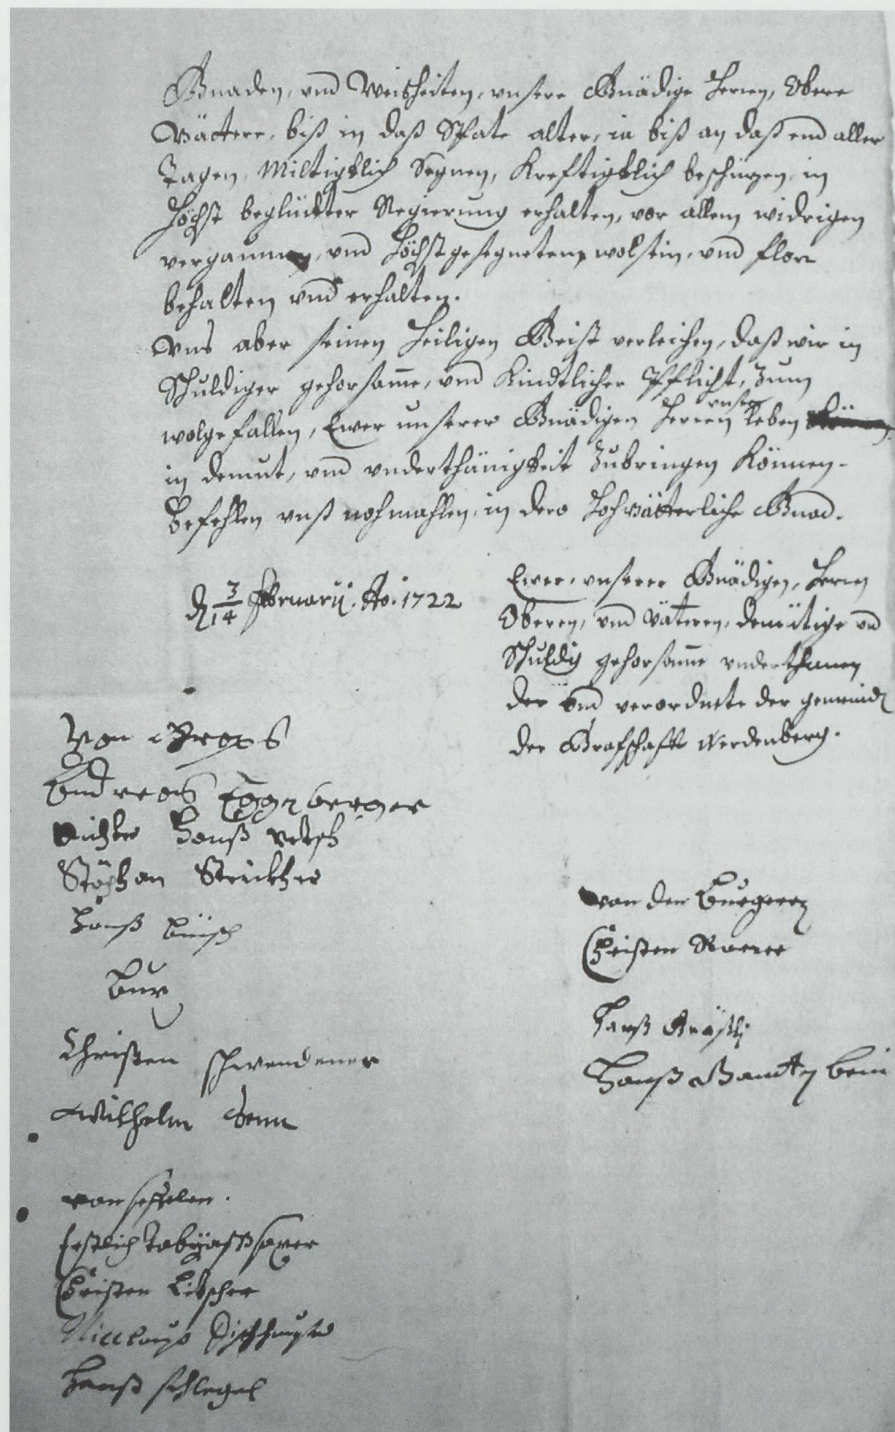 Gnaden, vnd Weißheiten, vnsere Gnädige Herren, Obere
Vättere, biß in daß Spate alter, ia biß an daß end aller
Tagen, Miltigklich Segnen, Krefftigklich beschirmen, in
Höchst beglückter Regierung erhalten, vor allem widrigen
vergaumen, vnd Höchstgesegneten wolstein, vnd flor
behalten vnd erhalten.
Vns aber seinen Heiligen Geist verleihen, daß wir in
Schuldiger gehorsamme, vnd Kindtlicher Pfflicht, Zum
wolgefallen, Ewer unserer Gnädigen Herren vnser Leben
in demut, vnd vnderthänigkeit Zubringen Können.
Befehlen vnß nochmahlen, in dero Hochvätterliche Gnad.
dn 3/14 Februarij. Ao. 1722
Ewer, vnserer Gnädigen, Herren
Oberen, vnd Vätteren, demütige vnd
Schuldig gehorsamme vnderthanen
der vnd verordnete der gemeind
der Grafschafft Werdenberg.
Von Grabs
Andreas Eggenberger
Richter Hanß vetsch
Stäffan Strickher
Hanß büsch
Bur
Christen schwendener
Wilhelm Senn
von seffelen.
Erstlich Tobyaß saxer
Christen Litscher
Niclauß Dischhauser
Hanß schlegel
von den Burgeren
Christen Rorer
Hanß Räßli
Hanß Gantenbein